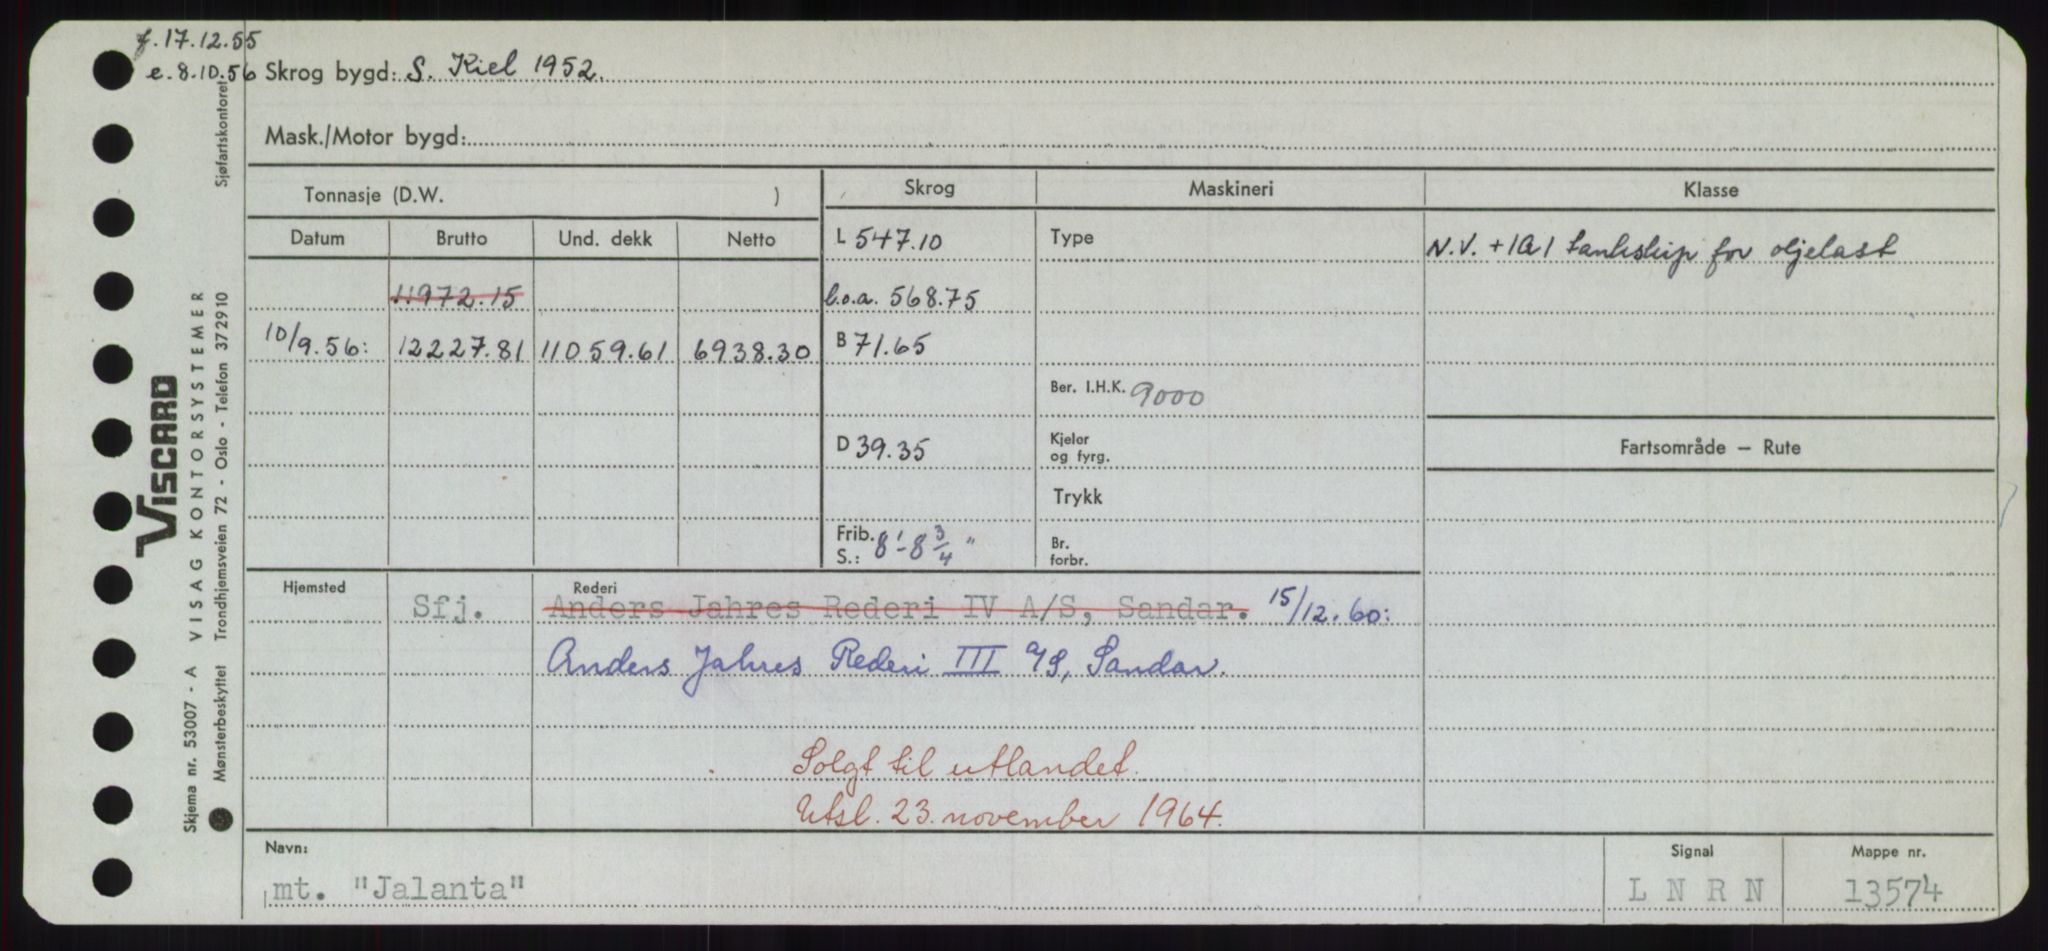 f. 17.12.55
e. 8.10.56 Skrog bygd: S. Kiel 1952.
Mask./Motor bygd:
Tonnasje (D.W. )
Skrog
Maskineri
Klasse
Datum Brutto Und. dekk Netto
L 547.10
Type
N.V. +1A1 tankskip for oljelast
11972.15
l.o.a. 568.75
10/9.56: 12227.81 11059.61 6938.30
B 71.65
Ber. I.H.K. 9000
D 39.35
Kjeler
og fyrg.
Fartsområde — Rute
Trykk
Frib.
S.: 8'-8 3/4"
Br.
forbr.
Hjemsted
Rederi
Sfj. Anders Jahres Rederi IV A/S, Sandar. 15/12.60:
Anders Jahres Rederi III A/S, Sandar.
Solgt til utlandet.
Utsl. 23. november 1964.
Navn:
Signal
Mappe nr.
mt. "Jalanta"
L N R N
13574
VISCARD
Skjema nr. 53007 - A VISAG KONTORSYSTEMER
Mønsterbeskyttet Trondhjemsveien 72 - Oslo - Telefon 372910 Sjøfartskontoret